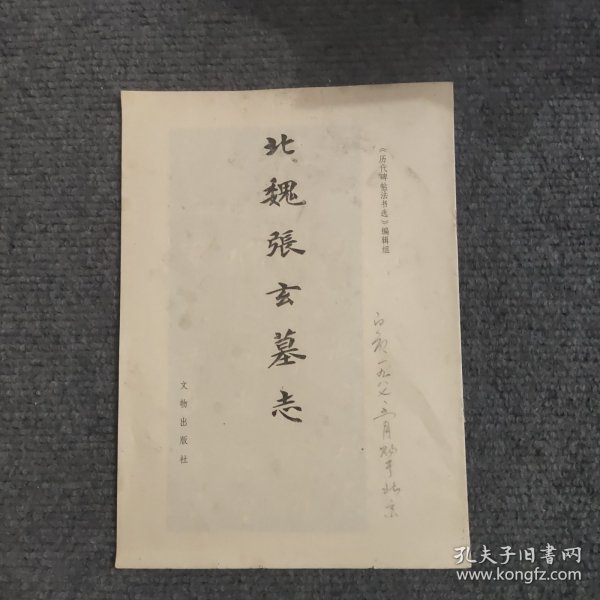 《历代碑帖法书选》编辑组
北魏張玄墓志
文物出版社
一九八七、五月购于北京
孔夫子旧书网
www.kongfz.com